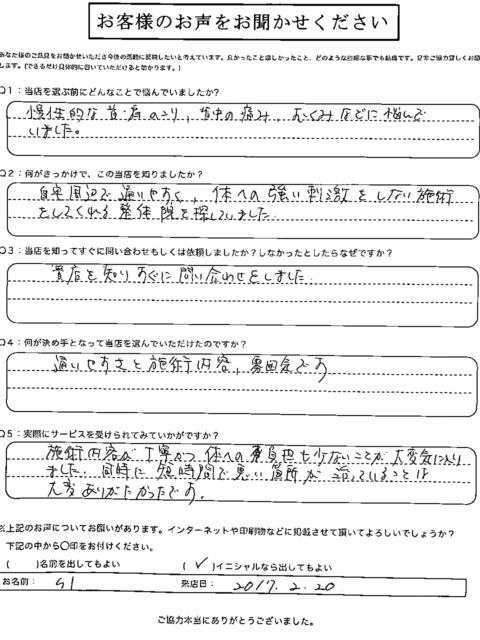 お客様のお声をお聞かせください
あなた様のご意見をお聞かせいただき今後の活動に反映したいと考えています。良かったこと悲しかったこと、どのような些細な事でも結構です。是非ご協力宜しくお願
します。(できるだけ具体的に書いていただけると助かります。)
Q1:当店を選ぶ前にどんなことで悩んでいましたか?
慢性的な首・肩のこり,背中の痛み,むくみなどに悩んで
いました。
Q2:何がきっかけで、この当店を知りましたか?
自宅周辺で通いやすく,体への強い刺激をしない施術
をしてくれる整体院を探していました.
Q3:当店を知ってすぐに問い合わせもしくは依頼しましたか?しなかったとしたらなぜですか?
貴店を知りすぐに問い合わせをしました.
Q4:何が決め手となって当店を選んでいただけたのですか?
通いやすさと施術内容,雰囲気です
Q5:実際にサービスを受けられてみていかがですか?
施術内容が丁寧かつ体への負担も少ないことが大変気に入り
ました.同時に短時間で悪い箇所が治っていることは
大変ありがたかったです.
※上記のお声についてお願いがあります。インターネットや印刷物などに掲載させて頂いてよろしいでしょうか?
下記の中から〇印をお付けください。
( )名前を出してもよい (✓)イニシャルなら出してもよい
お名前: 来店日: 2017.2.20
ご協力本当にありがとうございました。